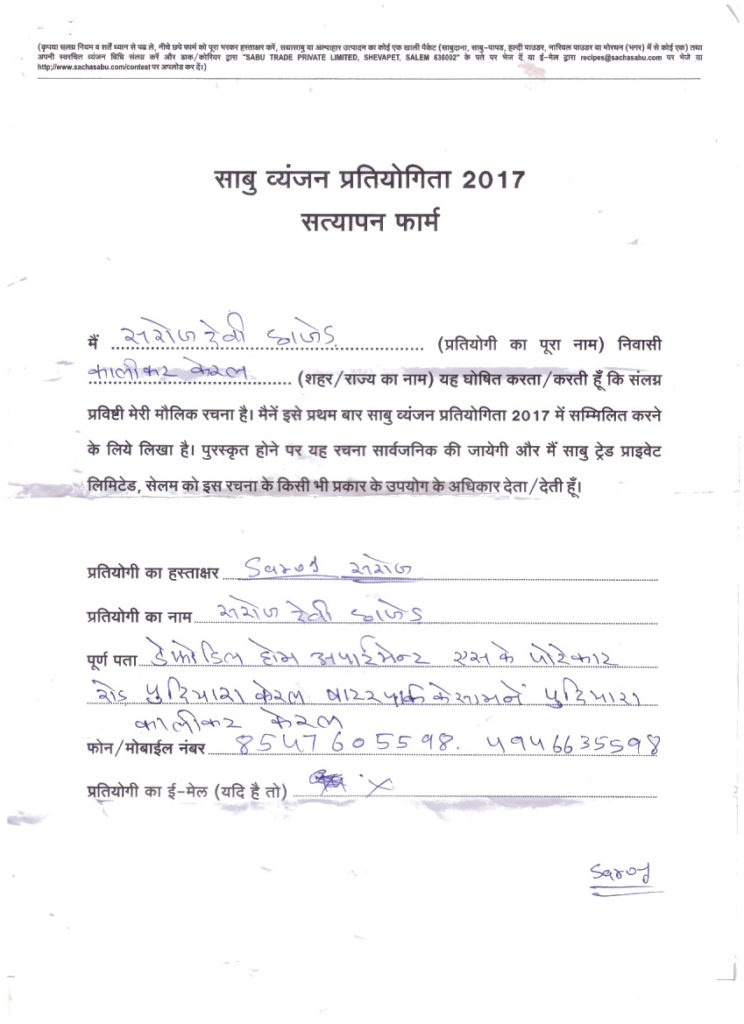 (कृपया सलग्न नियम व शर्तें ध्यान से पढ ले, नीचे छपे फार्म को पूरा भरकर हस्ताक्षर करें, सचासाबु या अल्पाहार उत्पादन का कोई एक खाली पैकेट (साबुदाना, साबु-पापड, हल्दी पाउडर, नारियल पाउडर या मोरधन (भगर) में से कोई एक) तथा
अपनी स्वरचित व्यंजन विधि संलग्न करें और डाक/कोरियर द्वारा "SABU TRADE PRIVATE LIMITED, SHEVAPET, SALEM 636002" के पते पर भेज दें या ई-मेल द्वारा recipes@sachasabu.com पर भेजे या
http://www.sachasabu.com/contest पर अपलोड कर दें।)
साबु व्यंजन प्रतियोगिता 2017
सत्यापन फार्म
मैं सरोज देवी छाजेड (प्रतियोगी का पूरा नाम) निवासी
कालीकट केरल (शहर/राज्य का नाम) यह घोषित करता/करती हूँ कि संलग्न
प्रविष्टी मेरी मौलिक रचना है। मैनें इसे प्रथम बार साबु व्यंजन प्रतियोगिता 2017 में सम्मिलित करने
के लिये लिखा है। पुरस्कृत होने पर यह रचना सार्वजनिक की जायेगी और मैं साबु ट्रेड प्राइवेट
लिमिटेड, सेलम को इस रचना के किसी भी प्रकार के उपयोग के अधिकार देता/देती हूँ।
प्रतियोगी का हस्ताक्षर Saroj सरोज
प्रतियोगी का नाम सरोज देवी छाजेड
पूर्ण पता डेफोडिल होम अपार्टमेन्ट एस के पोटेकाट
रोड पुदियारा केरल वाटर पार्क के सामने पुदियारा
कालीकट केरल
फोन/मोबाईल नंबर 8547605598. 4946635598
प्रतियोगी का ई-मेल (यदि है तो) X
Saroj